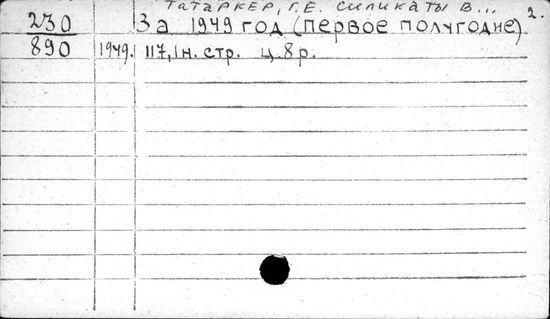 Татаркер, Г.Е. Силикаты в... 2.
230 За 1949 год (первое полугодие)
890 1949. 117, 1н. стр. ц. 8 р.